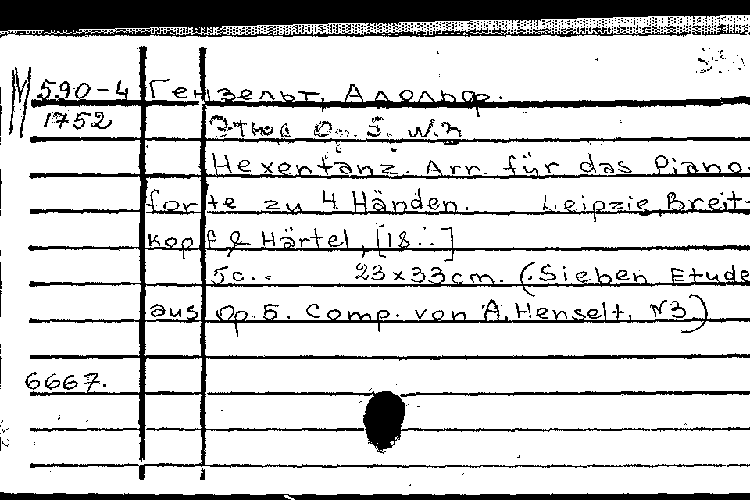 М 590-4 Гензельт, Адольф.
1752 Этюд Op. 5. N.3
Hexentanz. Arr. für das Piano-
forte zu 4 Händen. Leipzig, Breit-
kopf & Härtel, [18..]
5с.. 23x33cm. (Sieben Etude
aus Op. 5. Comp. von A. Henselt, N3)
6667.